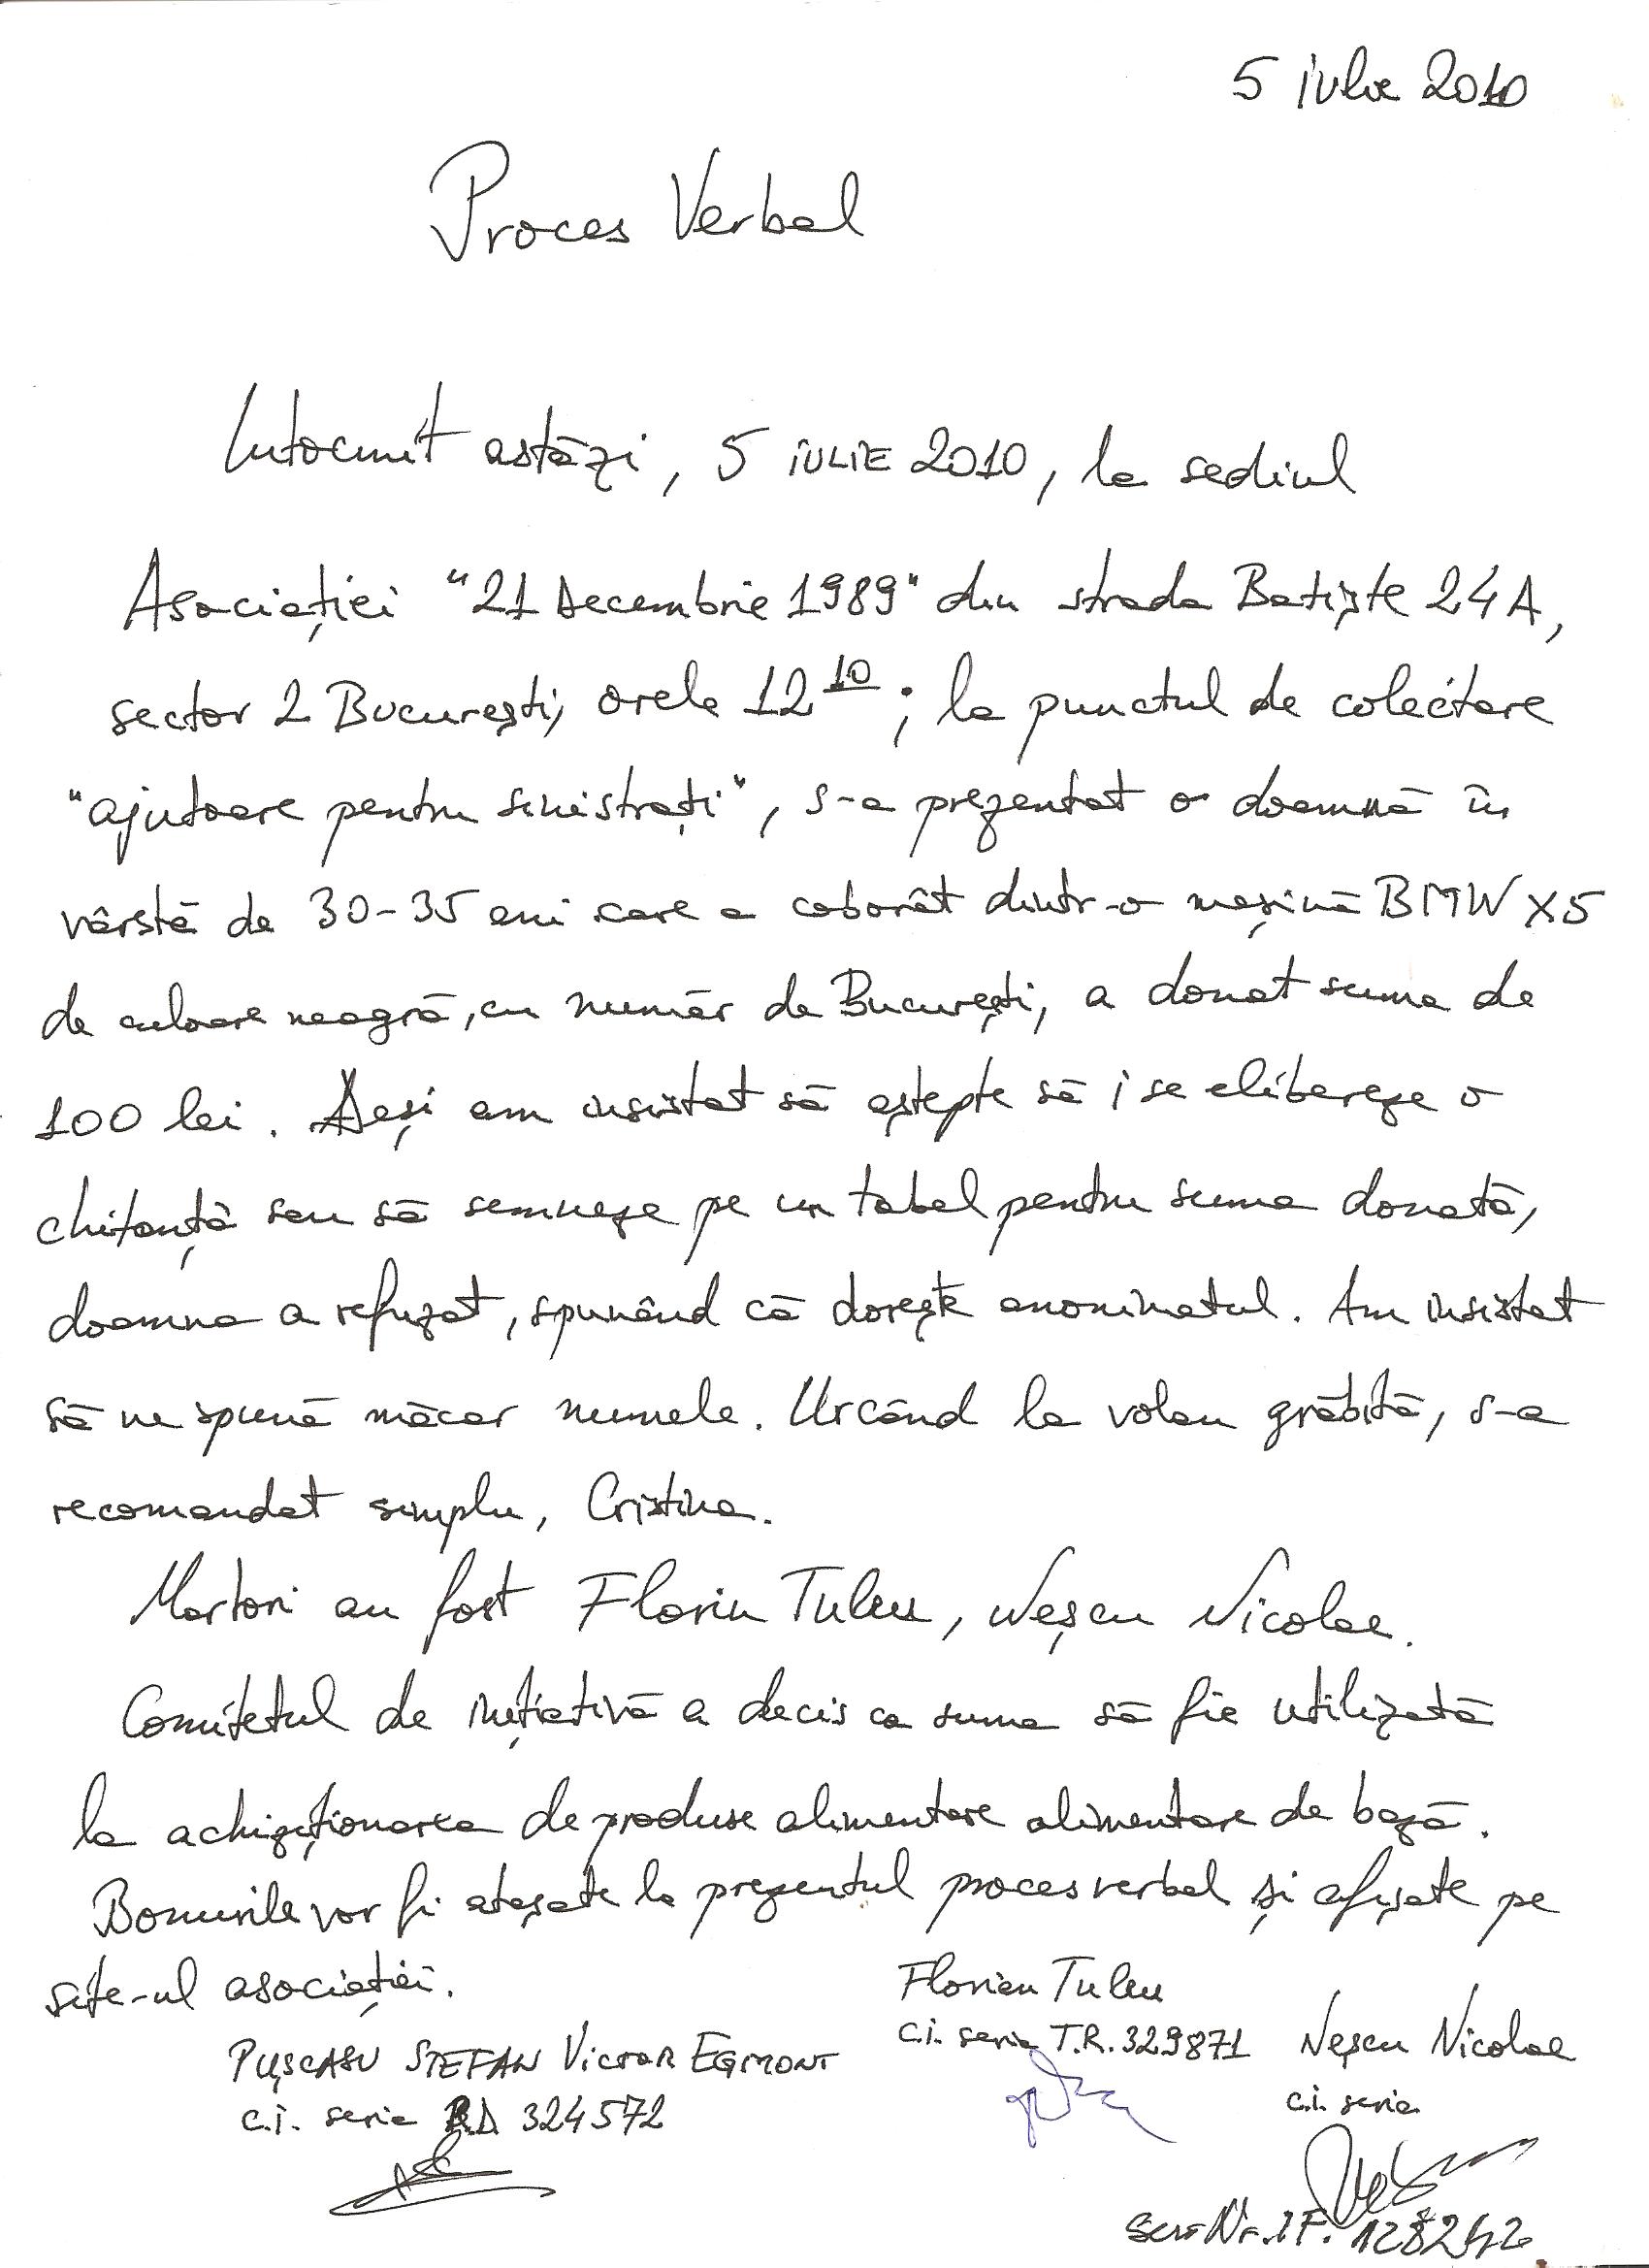 5 iulie 2010
Proces Verbal
Intocmit astăzi, 5 iulie 2010, la sediul
Asociației "21 Decembrie 1989" din strada Batiște 24A,
sector 2 București, orele 12 10; la punctul de colectare
"ajutoare pentru sinistrați", s-a prezentat o doamnă în
vârstă de 30-35 ani care a coborât dintr-o mașină BMW X5
de culoare neagră, cu număr de București, a donat suma de
100 lei. Deși am insistat să aștepte să i se elibereze o
chitanță sau să semneze pe un tabel pentru suma donată,
doamna a refuzat, spunând că dorește anonimatul. Am insistat
să ne spună măcar numele. Urcând la volan grăbită, s-a
recomandat simplu, Cristina.
Martori au fost Florin Tuleu, Neșcu Nicolae.
Comitetul de inițiativă a decis ca suma să fie utilizată
la achiziționarea de produse alimentare alimentare de bază.
Bonurile vor fi atașate la prezentul proces verbal și afișate pe
site-ul asociației.
Florian Tuleu
c.i. seria T.R. 329871
Neșcu Nicolae
c.i. seria
PUȘCASU STEFAN VICTOR EGMONT
c.i. seria R.D. 324572